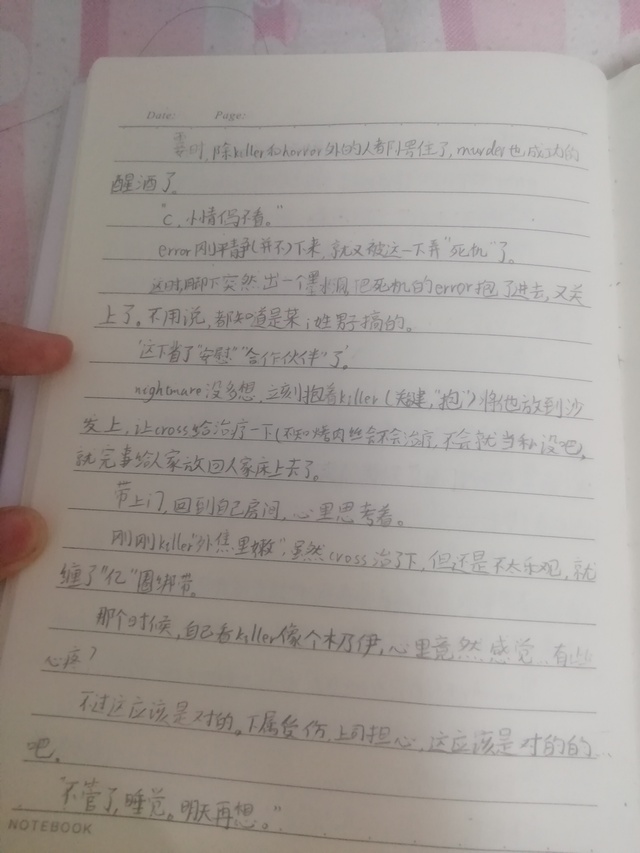 Date: Page:
霎时,除killer和horror外的人都愣住了,murder也成功的
醒酒了。
"C,小情侣不看。"
error刚平静(并不)下来,就又被这一下弄"死机"了。
这时,脚下突然出一个墨水洞,把死机的error抱了进去,又关
上了。不用说,都知道是某i姓男子搞的。
"这下省了"安慰""合作伙伴"了。
nightmare没多想,立刻抱着killer(关建,"抱")将他放到沙
发上,让cross给治疗一下(不知烤肉丝会不会治疗,不会就当私设吧,
就完事给人家放回人家床上去了。
带上门,回到自己房间,心里思考着。
刚刚killer"外焦里嫩",虽然cross治了下,但还是不太乐观,就
缠了"亿"圈绑带。
那个时候,自己看killer像个木乃伊,心里竟然感觉有些
心疼?
不过这应该是对的。下属受伤,上司担心,这应该是对的的
吧。
"不管了,睡觉。明天再想。"
NOTEBOOK